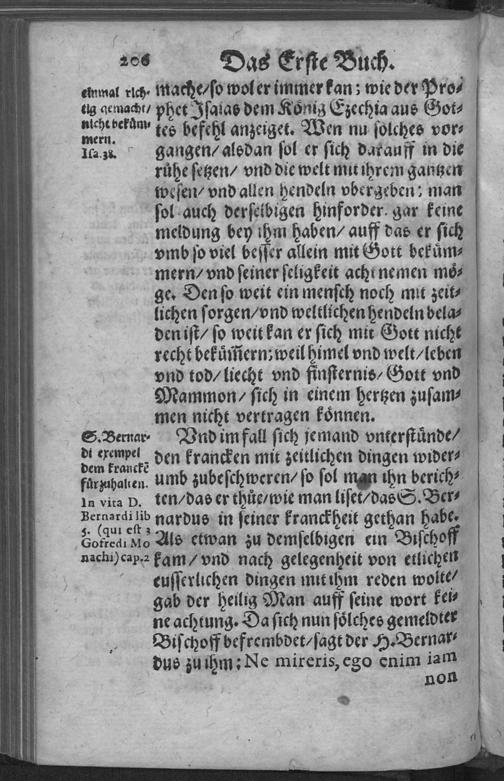 206 Das Erste Buch.
einmal rich-
tig gemacht/
nicht beküm-
mern.
Isa. 38.
mache/so wol er immer kan; wie der Pro-
phet Isaias dem König Ezechia aus Got-
tes befehl anzeiget. Wen nu solches vor-
gangen/alsdan sol er sich darauff in die
rühe setzen/ vnd die welt mit ihrem gantzen
wesen/ vnd allen hendeln vbergeben; man
sol auch derselbigen hinforder gar keine
meldung bey ihm haben/ auff das er sich
vmb so viel besser allein mit Gott beküm-
mern/ vnd seiner seligkeit acht nemen mö-
ge. Den so weit ein mensch noch mit zeit-
lichen sorgen/vnd weltlichen hendeln bela-
den ist/ so weit kan er sich mit Gott nicht
recht beküm̄ern; weil himel vnd welt/ leben
vnd tod/ liecht vnd finsternis/ Gott vnd
Mammon/ sich in einem hertzen zusam-
men nicht vertragen können.
S. Bernar-
di exempel
dem kranckē
fürzuhalten.
In vita D.
Bernardi lib
5. (qui est 3
Gofredi Mo
nachi) cap. 2
Vnd im fall sich jemand vnterstünde/
den krancken mit zeitlichen dingen wider-
umb zubeschweren/ so sol man ihn berich-
ten/das er thüe/wie man liset/das S. Ber-
nardus in seiner kranckheit gethan habe.
Als etwan zu demselbigen ein Bischoff
kam/ vnd nach gelegenheit von etlichen
eusserlichen dingen mit ihm reden wolte/
gab der heilig Man auff seine wort kei-
ne achtung. Da sich nun sölches gemeldter
Bischoff befrembdet/ sagt der H. Bernar-
dus zu ihm; Ne mireris, ego enim iam
non